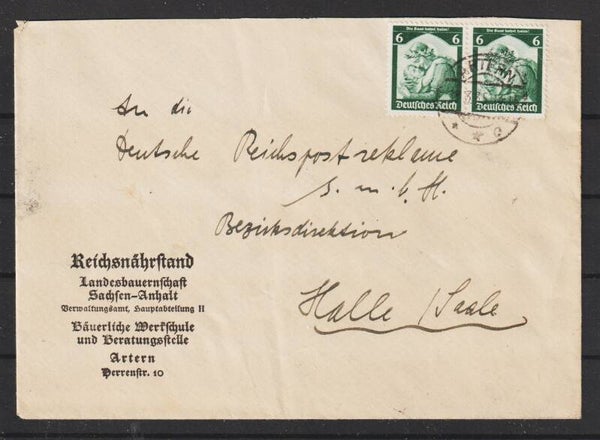 6 Die Saar kehrt heim! 6
Deutsches Reich
6 Die Saar kehrt heim! 6
Deutsches Reich
ARTERN
c
An die
Deutsche Reichspostreklame
G. m. b. H.
Bezirksdirektion
Halle / Saale
Reichsnährstand
Landesbauernschaft
Sachsen-Anhalt
Verwaltungsamt, Hauptabteilung II
Bäuerliche Werkschule
und Beratungsstelle
Artern
Herrenstr. 10